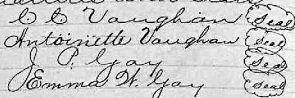 C C Vaughan Seal
Antoinette Vaughan Seal
J. P. Gay Seal
Emma W. Gay Seal